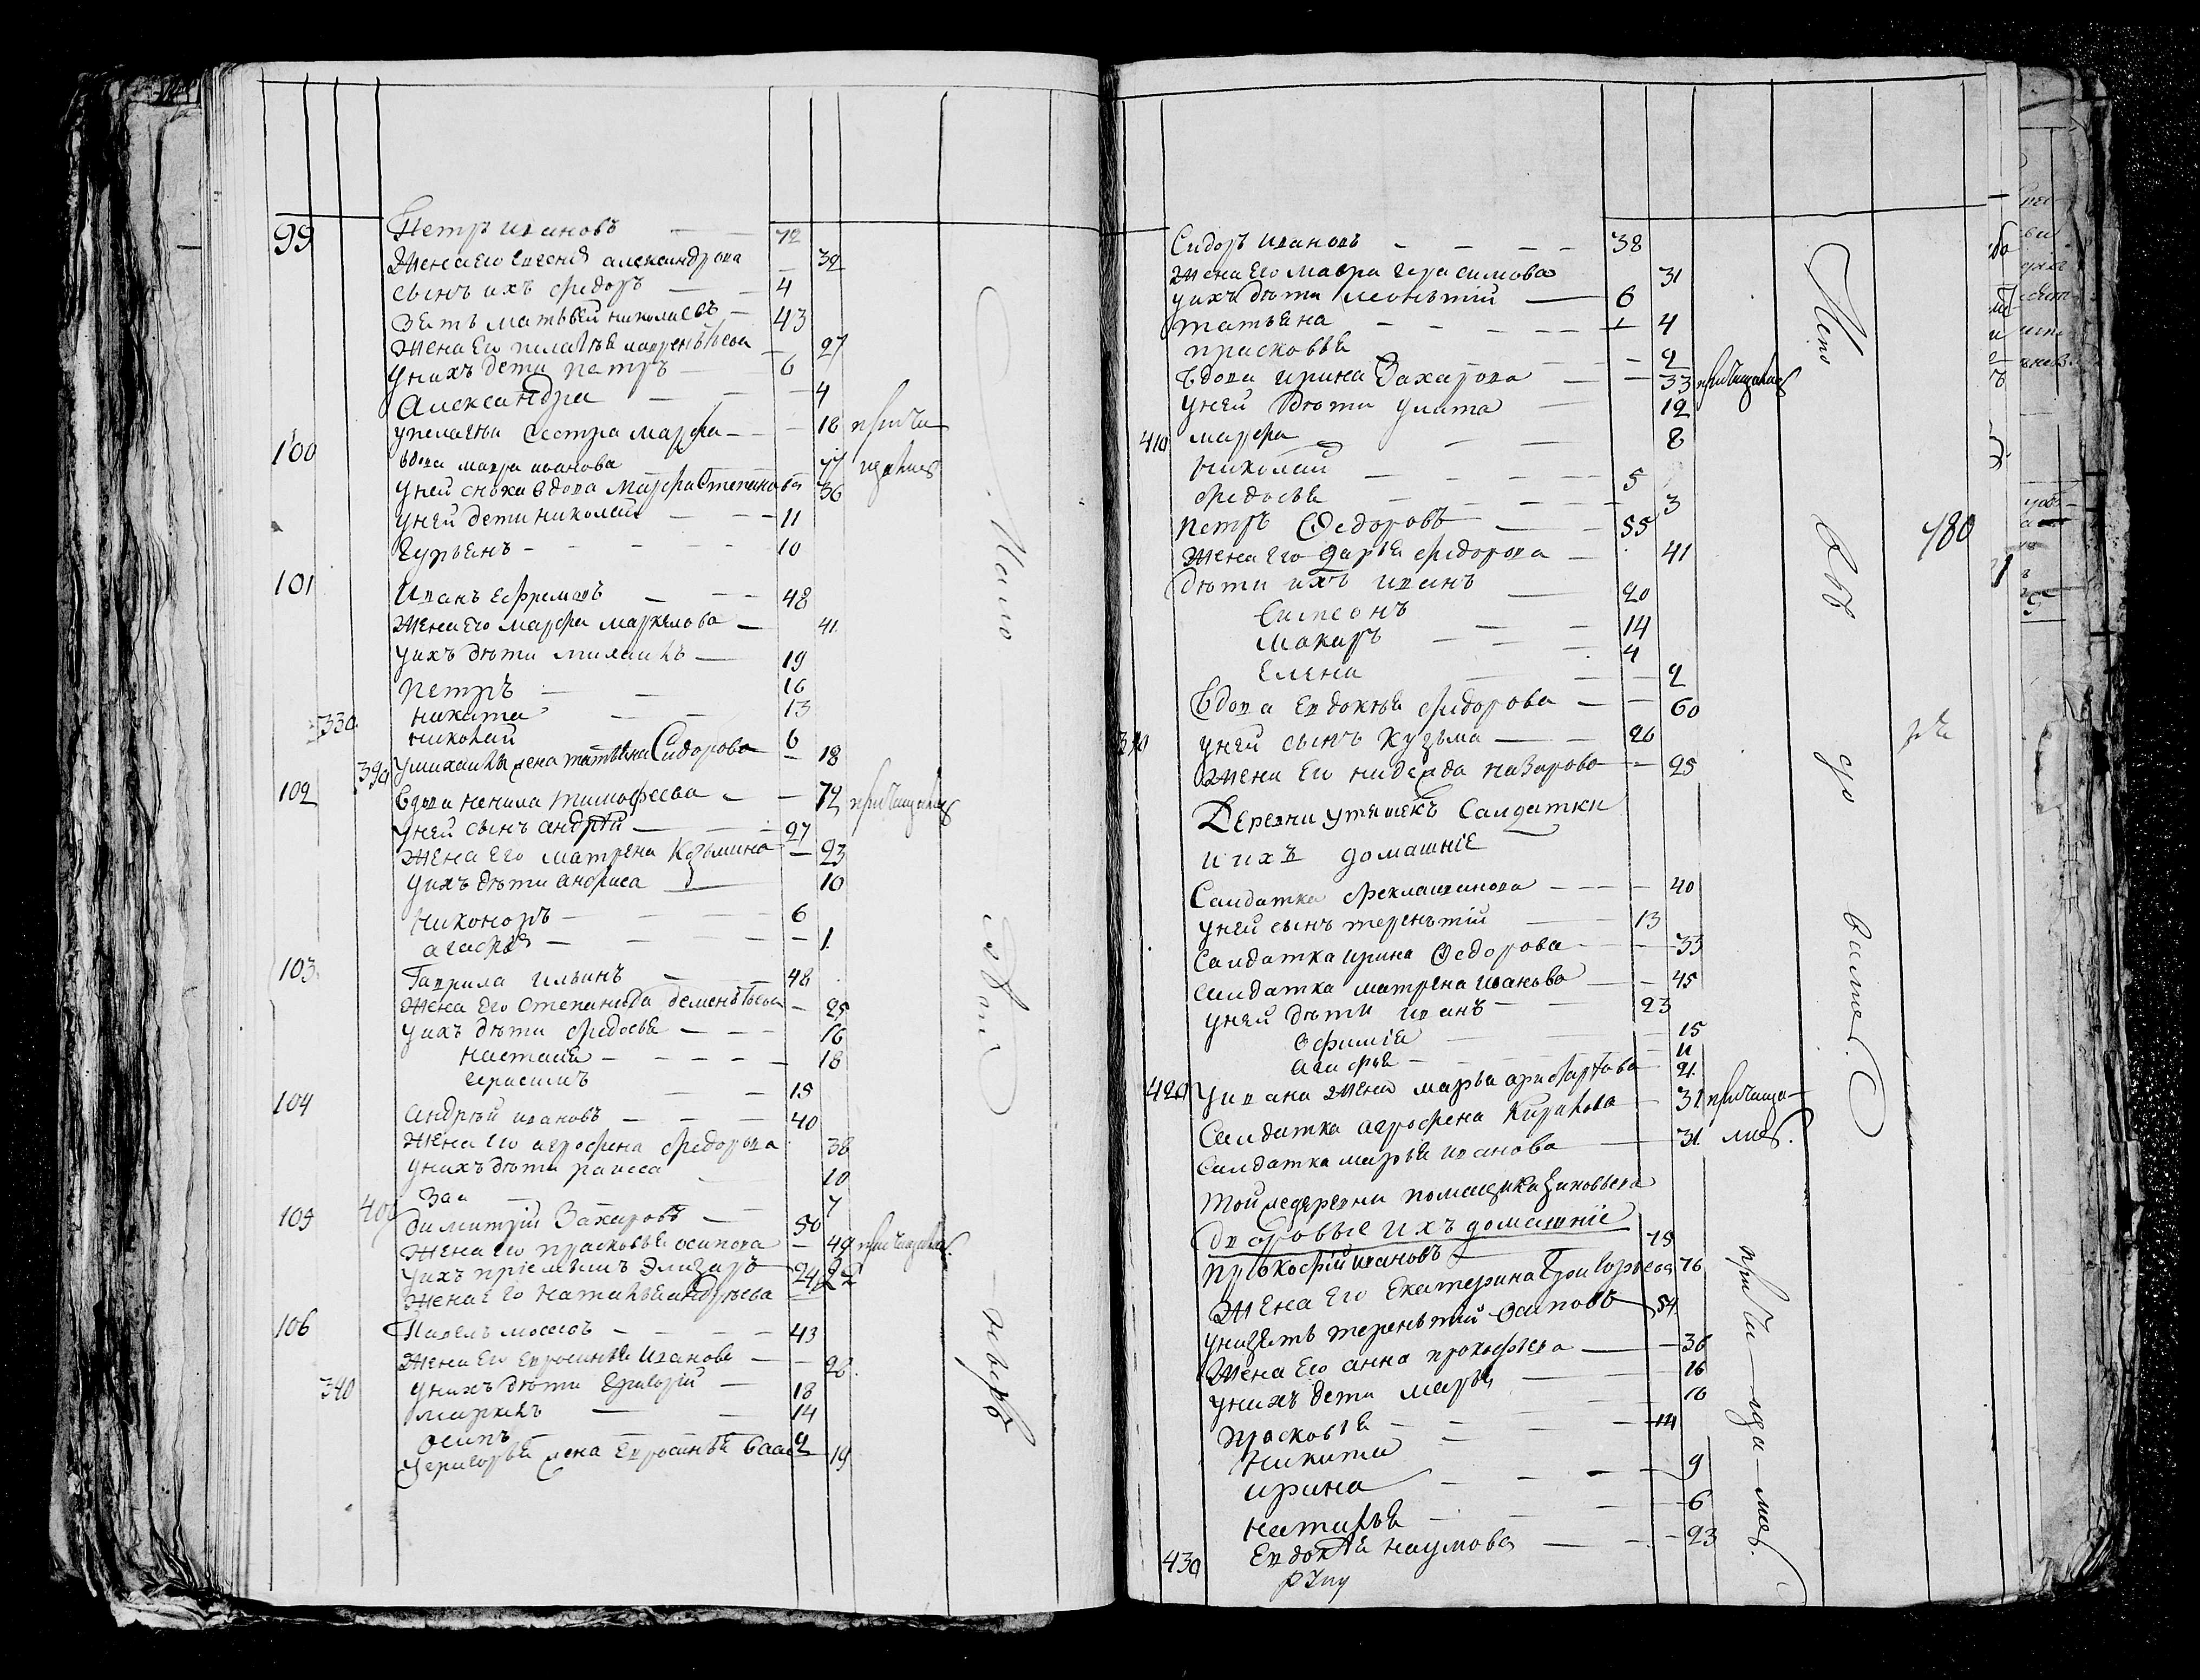 99 Петръ ивановъ — — 72
Жена его Евгения александрова — 32
сынъ ихъ федоръ — — 4
Зять матвей николаевъ — 43
Жена его пелагея лаврентьева — 27
У нихъ дети петръ — — 6
Александра — — — 4
У пелагеи сестра марфа — — 18 прича
100 вдова мавра иванова 77 щалися
У ней сноха вдова марфа Степанова 36
У ней дети николай — — 11
Гурьянъ — — — — 10
101 Иванъ Ефремовъ — — — 48
Жена его марфа маркелова — 41
У ихъ дѣти михаилъ — 19
петръ — — 16
никита — — 13
330 николай 6
390 У михаилы жена татьяна Сидорова — 18
102 Вдова ненила тимофеева — — 72 причащалися
У ней сынъ андрѣй — — 27
Жена его матрена Козьмина — 23
У ихъ дѣти анфиса — 10
Никоноръ — — — — 6
агафия — — — — 1
103 Гаврила ильинъ — — 48
Жена его Степанида деменьтьева — 25
У ихъ дѣти федосья — — — 16
настасия — — — — 18
герасимъ — — 15
104 андрѣй ивановъ — — — 40
Жена его агрофена федорова 38
У нихъ дѣти раисса 10
400 Зая — — — 7
105 димитрій Захаровъ — — 50
Жена его прасковья осипова — 49 причащалися
У ихъ пріемышъ Элизаръ 24
Жена его наталья андрѣева 22
106 Павелъ мосеевъ — — — 43
Жена его евросинья Иванова — — 28
340 У нихъ дѣти Григорій — 18
маркелъ — — 14
Осипъ — — — 9
У григорья жена евросинья 19
Мало
Сидоръ ивановъ — — — — 38
Жена его мавра герасимова 31
У ихъ дѣти леонътий — 6
татьяна — — — — 4
прасковья — 2
Вдова ирина Захарова — — 33 причащалися
У ней дѣти улита — 12
410 марфа — — — 8
николай — — — — 5
федосья — — — — 3
Петръ Федоровъ — — 55
Жена его дарья федорова — 41
дѣти ихъ иванъ — 20
Симеонъ 14
Макаръ — — — 4
Елена — — 2
Вдова евдокья федорова — — 60
У ней сынъ кузьма — — 26
Жена его надежда назарова — 25
Деревни утяшекъ Салдатки
и ихъ домашніе
Салдатка фекла иванова — — — 40
У ней сынъ терентій — 13
Салдатка ирина Федорова — — 33
Салдатка матрена иванова — — 45
У ней дѣти иванъ — 23
Офимія — — 15
агафья — — — 11
420 У ивана жена марья 21
Салдатка агрофена 31 причаща-
Салдатка марья иванова — 31 лися.
той же деревни помещика Зиновьева
дворовые и ихъ домашніе
Прокофій ивановъ — 75
Жена его Екатерина Григорьева 76
У них зять терентій осиповъ 54
Жена его анна прокофьева — — 36
У нихъ дети марья — — 16
Прасковья — — — 16
Никита — — 14
ирина — — — — 9
наталья — — — 6
430 Евдокия наумова — — 23
480
причащалися